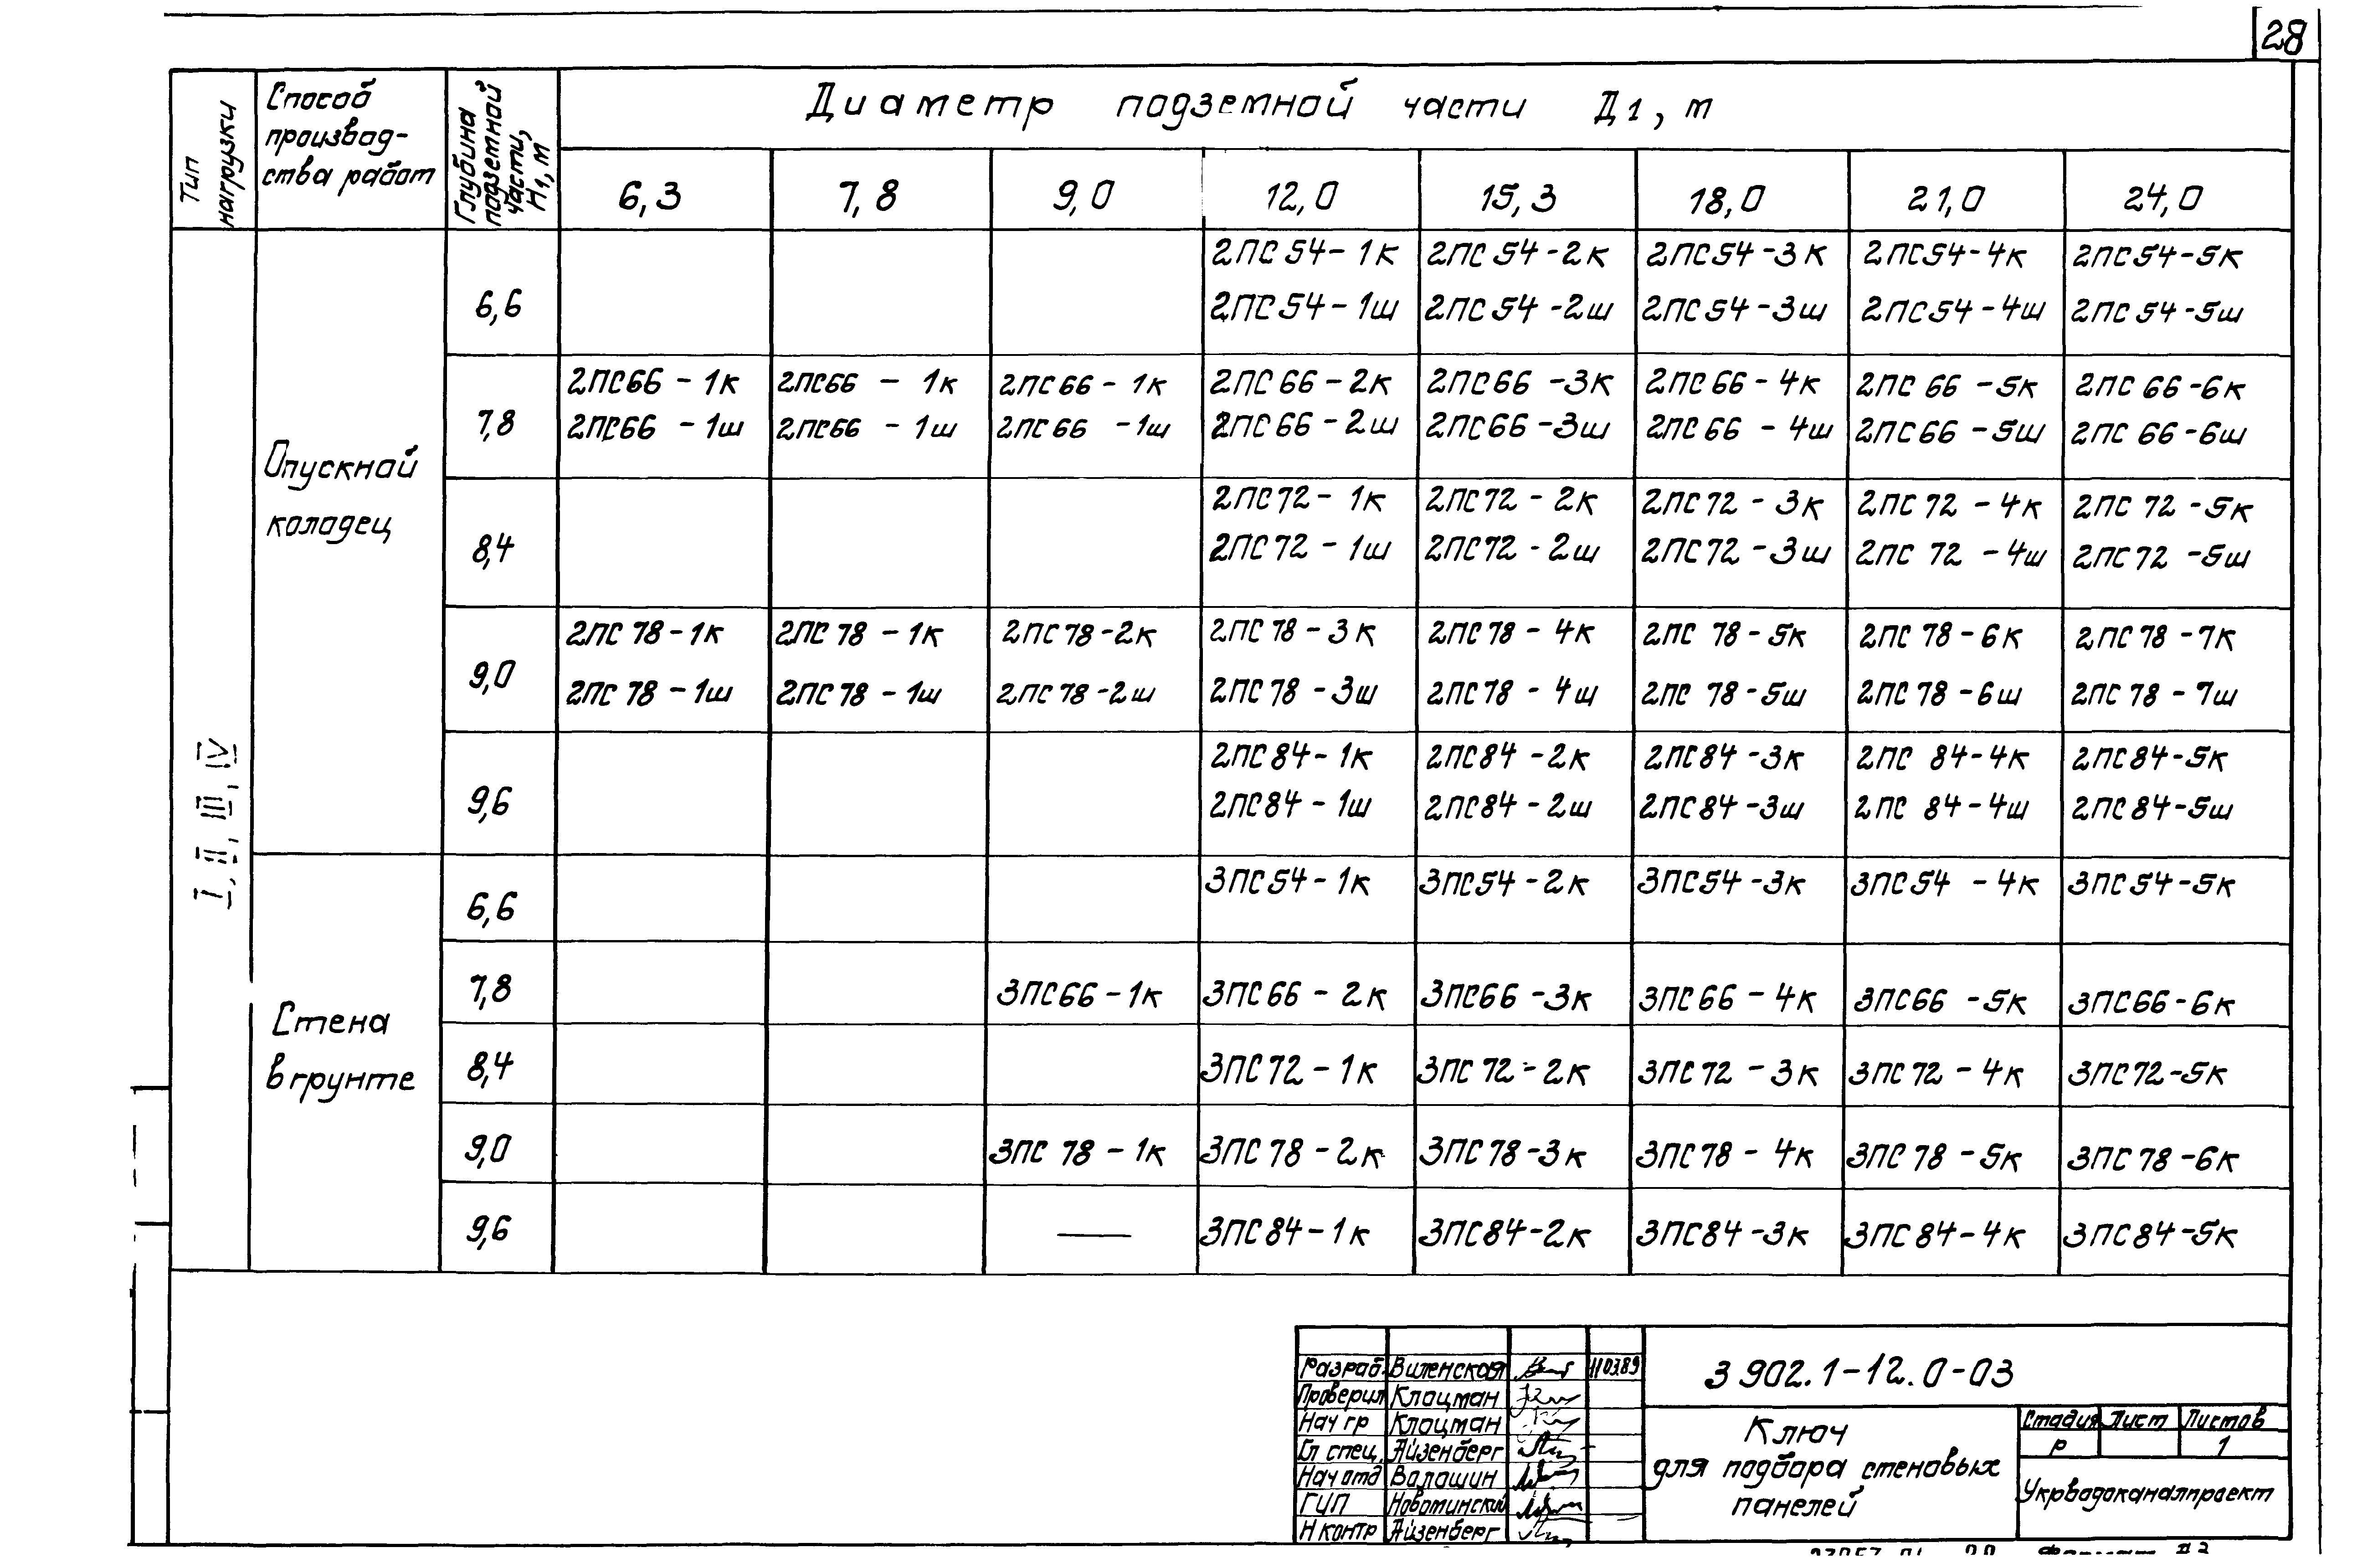 28
Тип нагрузки
Способ
производ-
ства работ
Глубина
подземной
части,
Н1, м
Диаметр подземной части Д1, м
6,3 7,8 9,0 12,0 15,3 18,0 21,0 24,0
I, II, III, IV
Опускной
колодец
6,6
2ПС54-1к 2ПС54-2к 2ПС54-3к 2ПС54-4к 2ПС54-5к
2ПС54-1ш 2ПС54-2ш 2ПС54-3ш 2ПС54-4ш 2ПС54-5ш
7,8
2ПС66-1к 2ПС66-1к 2ПС66-1к 2ПС66-2к 2ПС66-3к 2ПС66-4к 2ПС66-5к 2ПС66-6к
2ПС66-1ш 2ПС66-1ш 2ПС66-1ш 2ПС66-2ш 2ПС66-3ш 2ПС66-4ш 2ПС66-5ш 2ПС66-6ш
8,4
2ПС72-1к 2ПС72-2к 2ПС72-3к 2ПС72-4к 2ПС72-5к
2ПС72-1ш 2ПС72-2ш 2ПС72-3ш 2ПС72-4ш 2ПС72-5ш
9,0
2ПС78-1к 2ПС78-1к 2ПС78-2к 2ПС78-3к 2ПС78-4к 2ПС78-5к 2ПС78-6к 2ПС78-7к
2ПС78-1ш 2ПС78-1ш 2ПС78-2ш 2ПС78-3ш 2ПС78-4ш 2ПС78-5ш 2ПС78-6ш 2ПС78-7ш
9,6
2ПС84-1к 2ПС84-2к 2ПС84-3к 2ПС84-4к 2ПС84-5к
2ПС84-1ш 2ПС84-2ш 2ПС84-3ш 2ПС84-4ш 2ПС84-5ш
Стена
в грунте
6,6 3ПС54-1к 3ПС54-2к 3ПС54-3к 3ПС54-4к 3ПС54-5к
7,8 3ПС66-1к 3ПС66-2к 3ПС66-3к 3ПС66-4к 3ПС66-5к 3ПС66-6к
8,4 3ПС72-1к 3ПС72-2к 3ПС72-3к 3ПС72-4к 3ПС72-5к
9,0 3ПС78-1к 3ПС78-2к 3ПС78-3к 3ПС78-4к 3ПС78-5к 3ПС78-6к
9,6 — 3ПС84-1к 3ПС84-2к 3ПС84-3к 3ПС84-4к 3ПС84-5к
Разраб. Виленская 110389
Проверил Клоцман
Нач гр Клоцман
Гл спец. Айзенберг
Нач отд Волошин
ГИП Новоминский
Н контр Айзенберг
3 902.1-12.0-03
Ключ
для подбора стеновых
панелей
Стадия Лист Листов
Р 1
Укрводоканалпроект